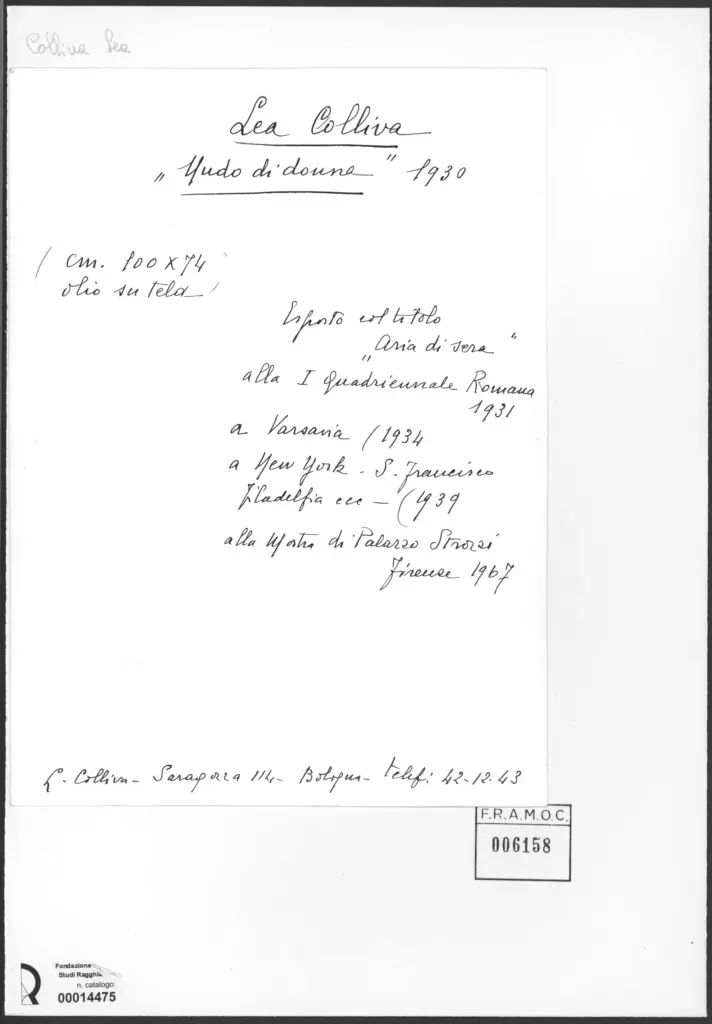 Colliva Lea
Lea Colliva
„ Nudo di donna " 1930
( cm. 100 x 74
olio su tela )
Esposto col titolo
„ Aria di sera "
alla I quadriennale Romana
1931
a Varsavia ( 1934
a New York - S. Francisco
Filadelfia ecc – ( 1939
alla Mostra di Palazzo Strozzi
Firenze 1967
L. Colliva - Saragozza 114 - Bologna - telef: 42-12-43
F.R.A.M.O.C.
006158
Fondazione
Studi Ragghia
n. catalogo:
00014475